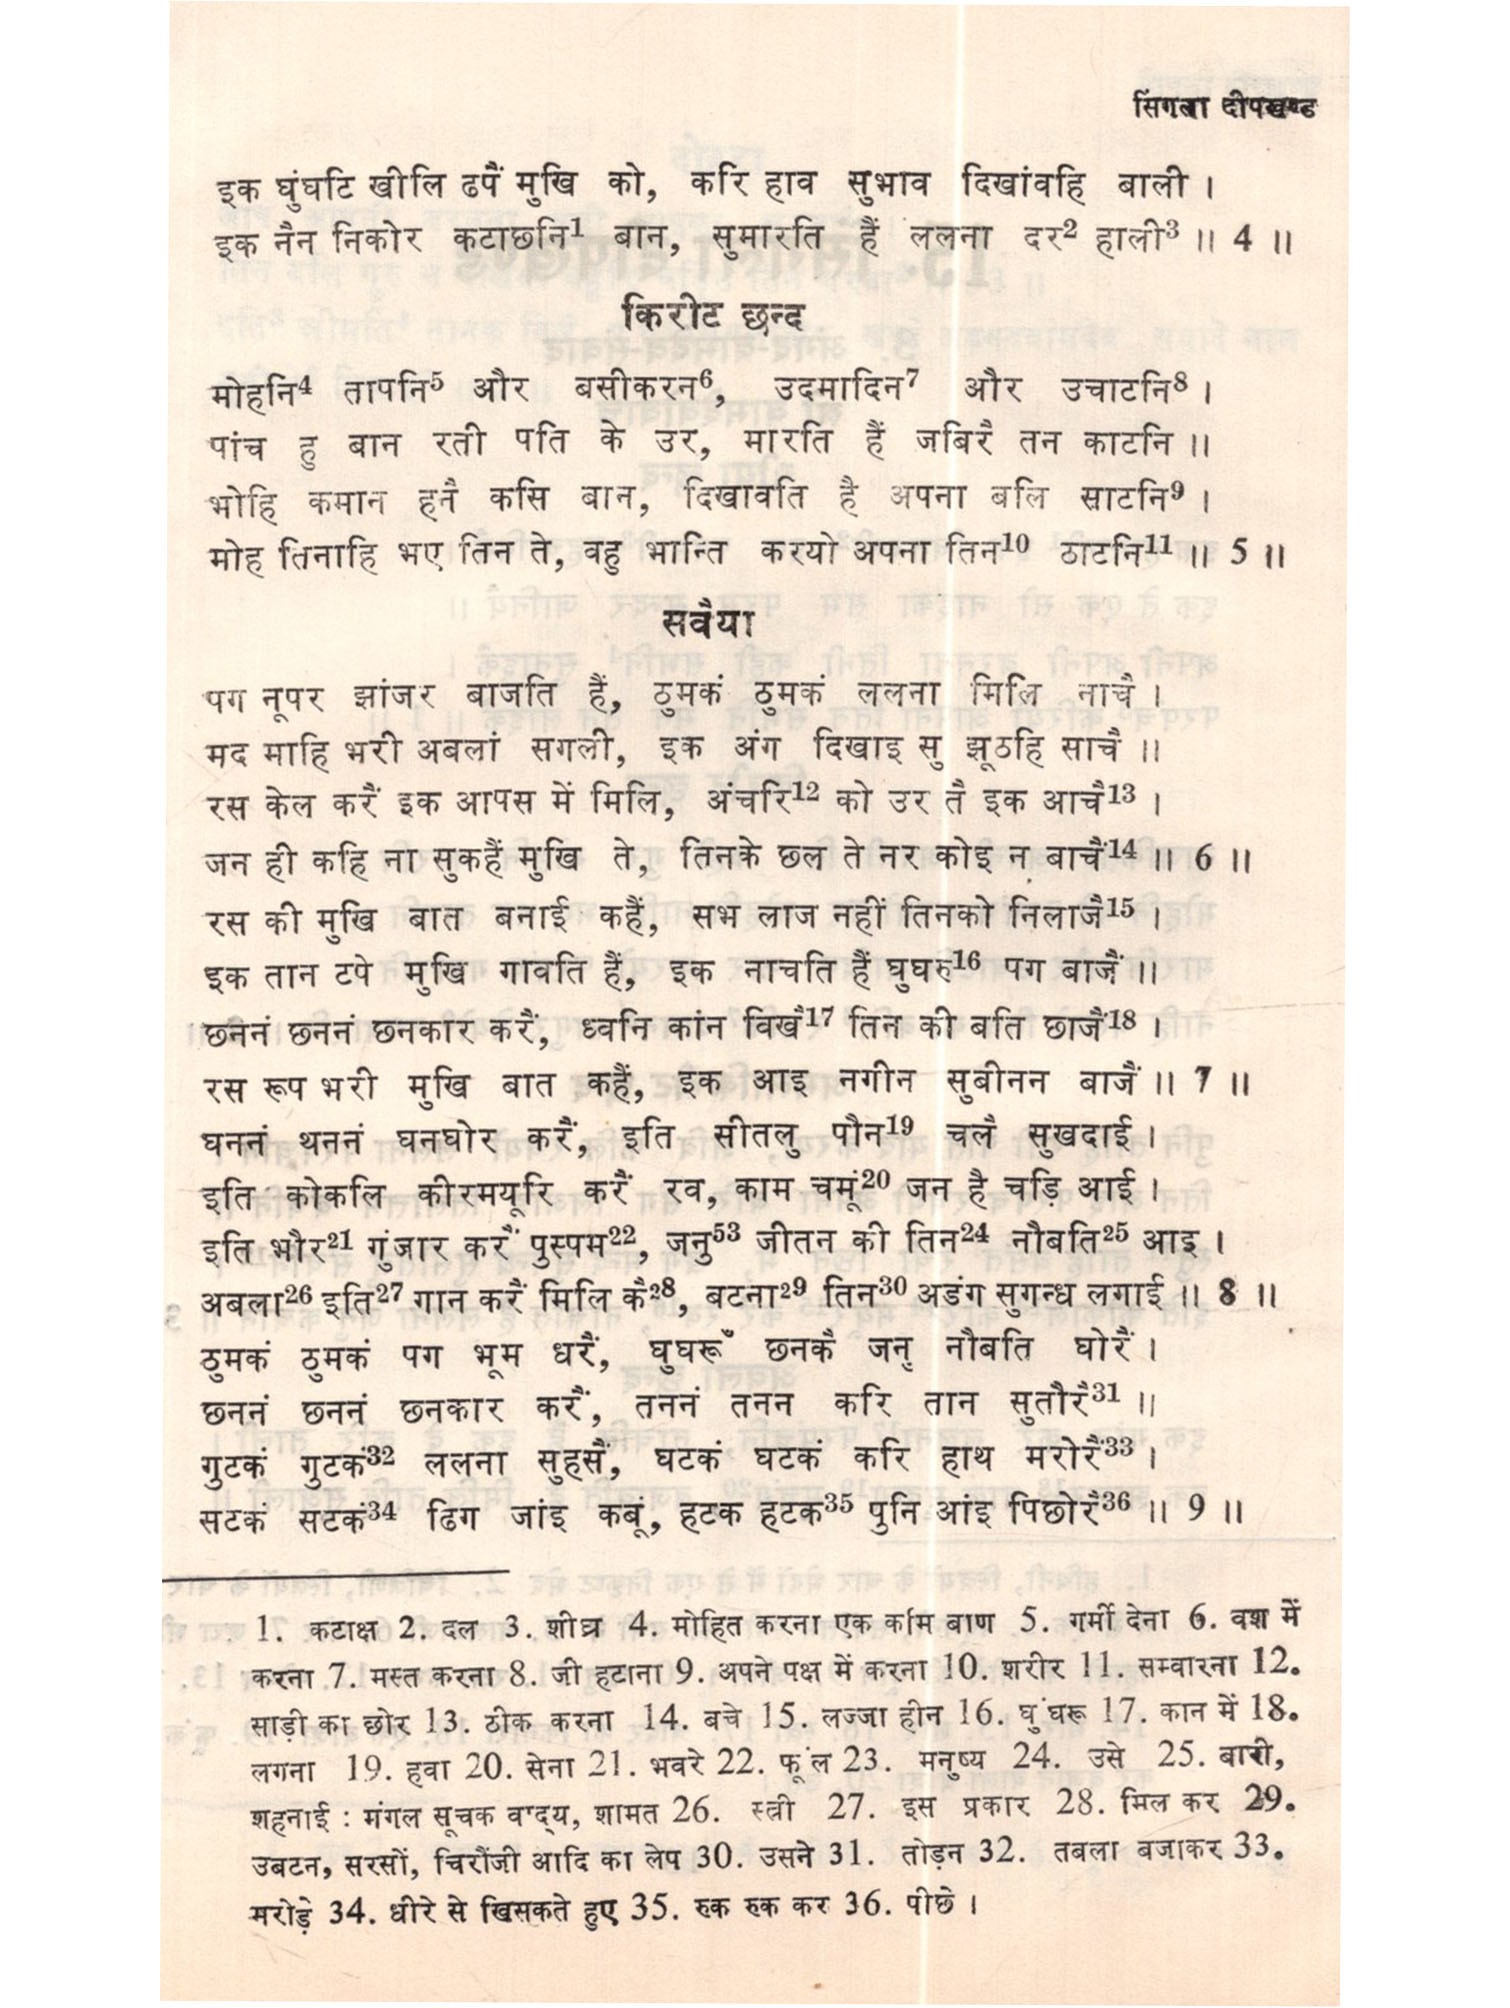 सिंगला दीपखण्ड
इक घुंघटि खीलि ढपैं मुखि को, करि हाव सुभाव दिखांवहि बाली ।
इक नैन निकोर कटाछनि¹ बान, सुमारति हैं ललना दर² हाली³ ॥ 4 ॥
किरीट छन्द
मोहनि⁴ तापनि⁵ और बसीकरन⁶, उदमादिन⁷ और उचाटनि⁸ ।
पांच हु बान रती पति के उर, मारति हैं जबिरै तन काटनि ॥
भोहि कमान हनै कसि बान, दिखावति है अपना बलि साटनि⁹ ।
मोह तिनाहि भए तिन ते, वहु भान्ति करयो अपना तिन¹⁰ ठाटनि¹¹ ॥ 5 ॥
सवैया
पग नूपर झांजर बाजति हैं, ठुमकं ठुमकं ललना मिलि नाचै ।
मद माहि भरी अबलां सगली, इक अंग दिखाइ सु झूठहि साचै ॥
रस केल करैं इक आपस में मिलि, अंचरि¹² को उर तै इक आचै¹³ ।
जन ही कहि ना सुकहैं मुखि ते, तिनके छल ते नर कोइ न बाचै¹⁴ ॥ 6 ॥
रस की मुखि बात बनाई कहैं, सभ लाज नहीं तिनको निलाजै¹⁵ ।
इक तान टपे मुखि गावति हैं, इक नाचति हैं घुघरु¹⁶ पग बाजैं ॥
छननं छननं छनकार करैं, ध्वनि कांन विखै¹⁷ तिन की बति छाजै¹⁸ ।
रस रूप भरी मुखि बात कहैं, इक आइ नगीन सुबीनन बाजैं ॥ 7 ॥
घननं थननं घनघोर करैं, इति सीतलु पौन¹⁹ चलै सुखदाई ।
इति कोकलि कीरमयूरि करैं रव, काम चमूं²⁰ जन है चड़ि आई ।
इति भौर²¹ गुंजार करैं पुस्पम²², जनु⁵³ जीतन की तिन²⁴ नौबति²⁵ आइ ।
अबला²⁶ इति²⁷ गान करैं मिलि कै²⁸, बटना²⁹ तिन³⁰ अडंग सुगन्ध लगाई ॥ 8 ॥
ठुमकं ठुमकं पग भूम धरैं, घुघरूँ छनकै जनु नौबति घोरैं ।
छननं छननं छनकार करैं, तननं तनन करि तान सुतौरै³¹ ॥
गुटकं गुटकं³² ललना सुहसैं, घटकं घटकं करि हाथ मरोरैं³³ ।
सटकं सटकं³⁴ ढिग जांइ कबूं, हटक हटक³⁵ पुनि आंइ पिछोरै³⁶ ॥ 9 ॥
1. कटाक्ष 2. दल 3. शीघ्र 4. मोहित करना एक काम बाण 5. गर्मी देना 6. वश में
करना 7. मस्त करना 8. जी हटाना 9. अपने पक्ष में करना 10. शरीर 11. सम्वारना 12.
साड़ी का छोर 13. ठीक करना 14. बचे 15. लज्जा हीन 16. घुंघरू 17. कान में 18.
लगना 19. हवा 20. सेना 21. भवरे 22. फूल 23. मनुष्य 24. उसे 25. बारी,
शहनाई : मंगल सूचक वाद्य, शामत 26. स्त्री 27. इस प्रकार 28. मिल कर 29.
उबटन, सरसों, चिरौंजी आदि का लेप 30. उसने 31. तोड़न 32. तबला बजाकर 33.
मरोड़े 34. धीरे से खिसकते हुए 35. रुक रुक कर 36. पीछे ।